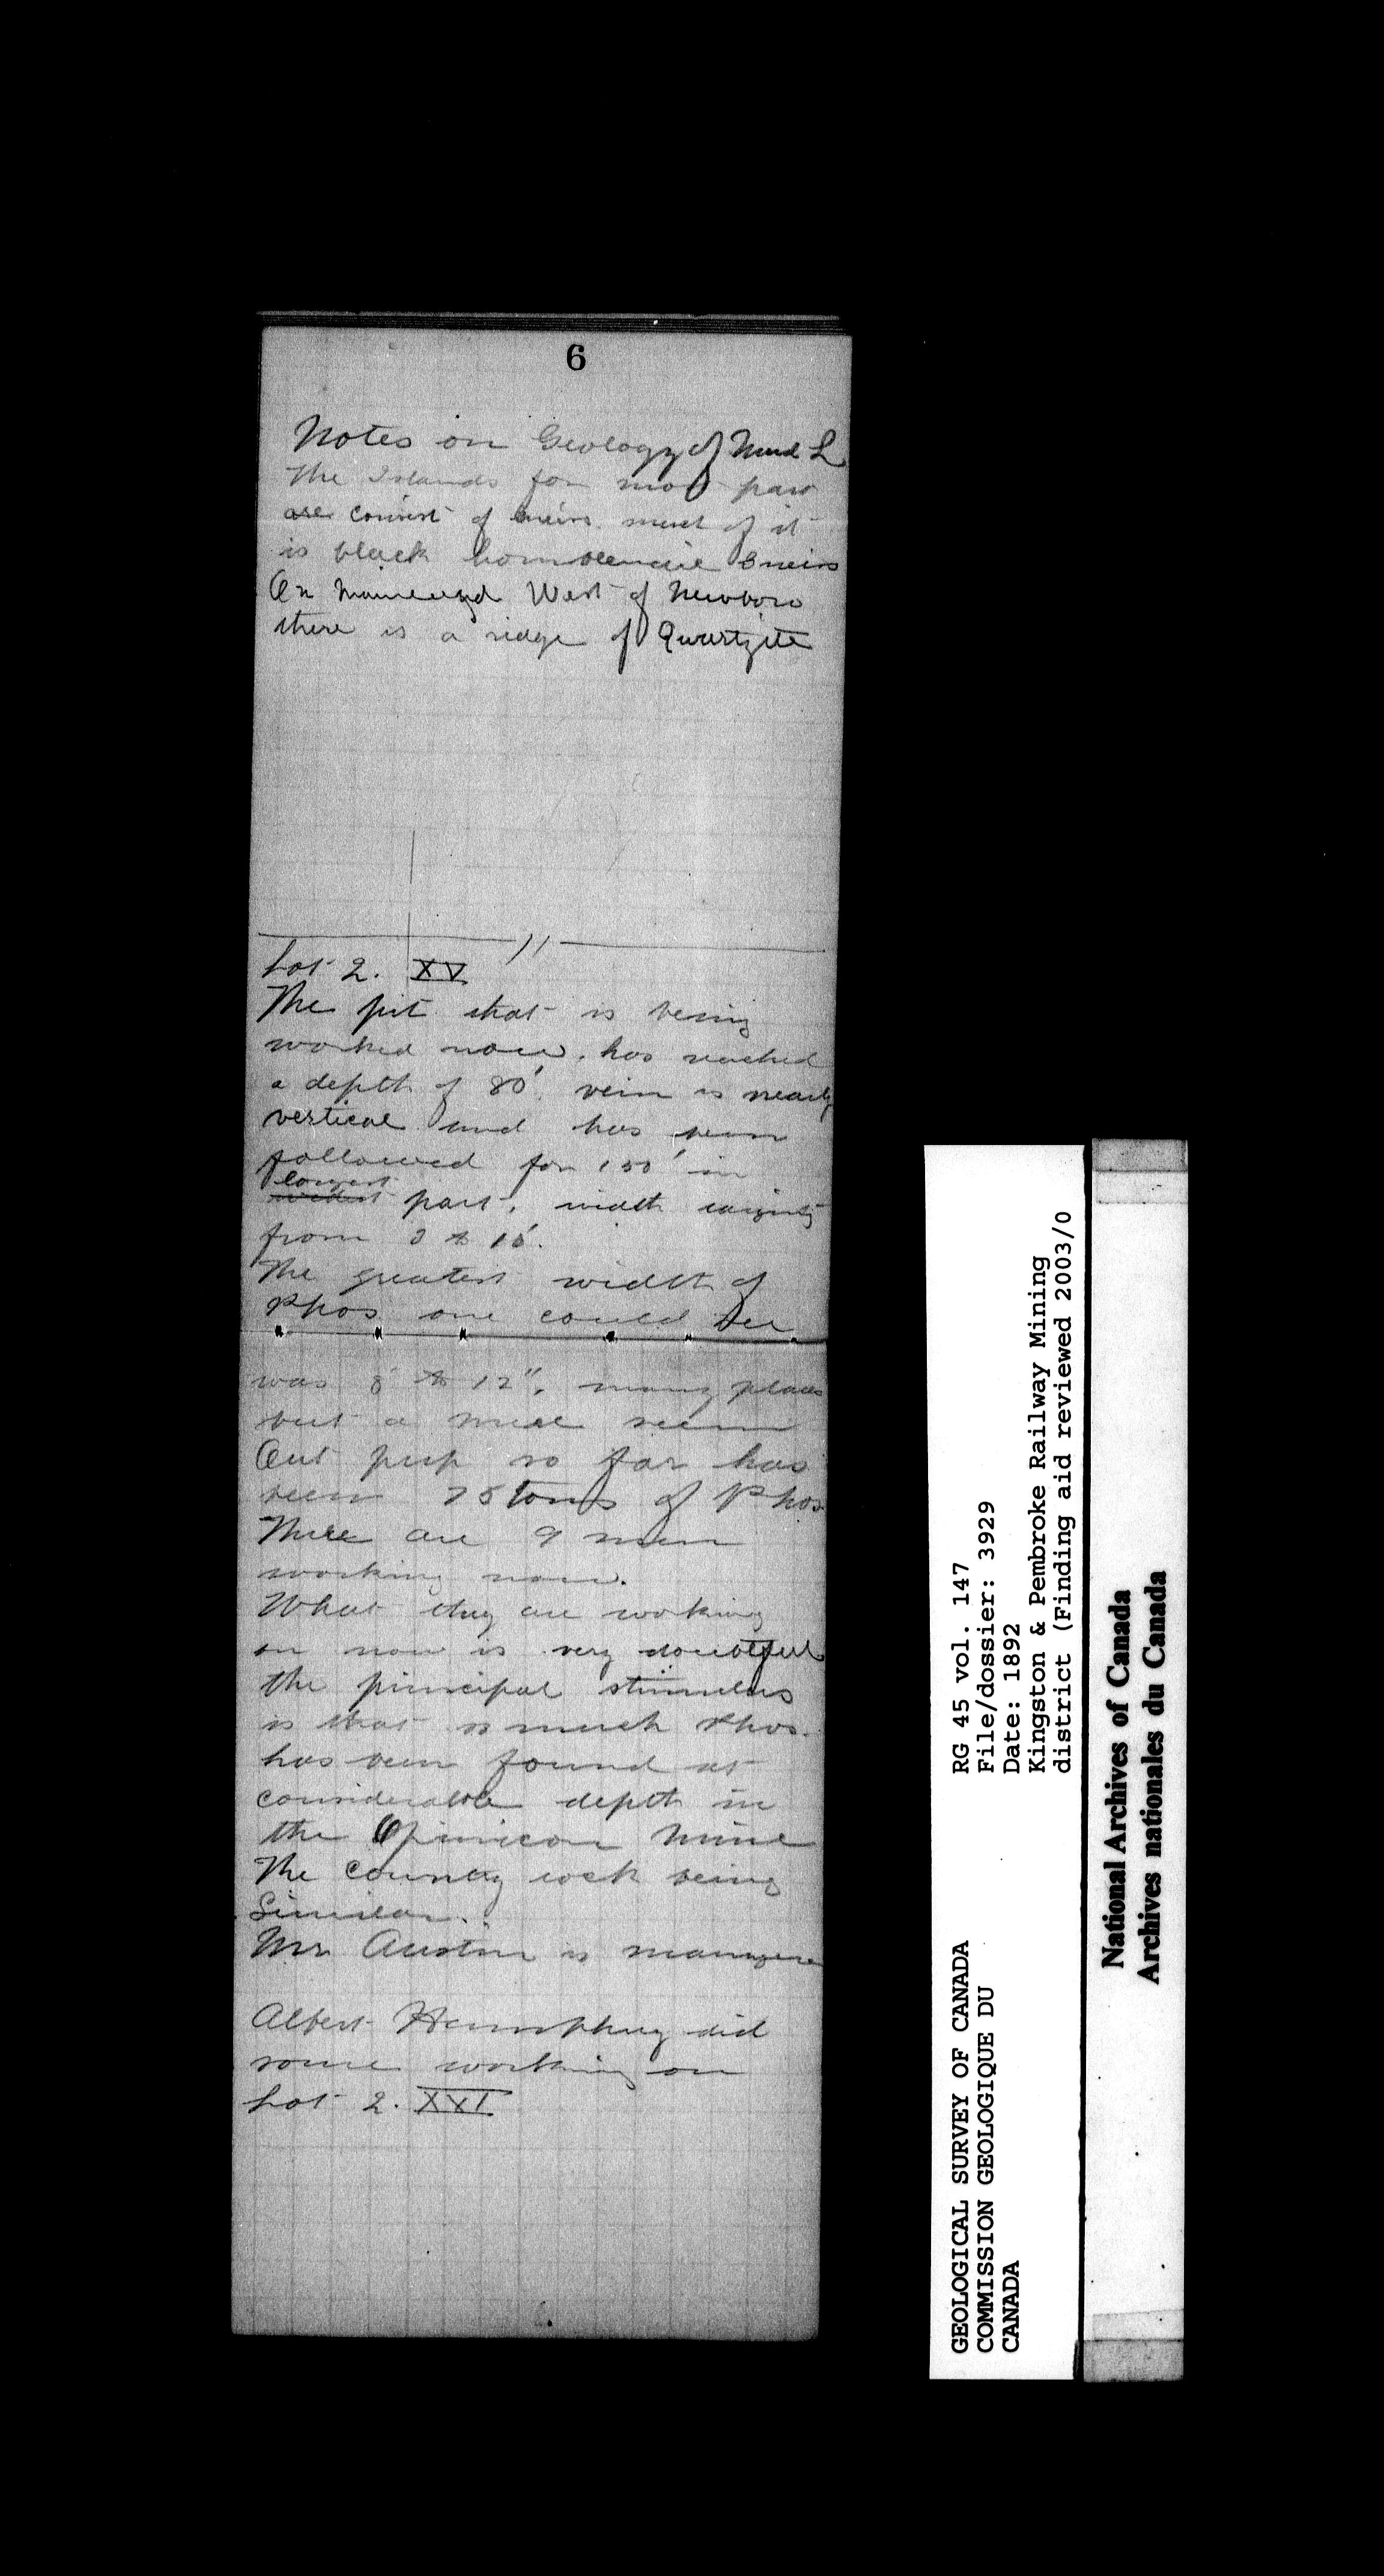 6
Notes on Geology of Mud L
The Islands for most part
are consist of Gneiss. most of it
is black hornblendic Gneiss
On Mainland West of Newboro
there is a ridge of Quartzite
11
Lot 2. XV
The pit that is being
worked now. has reached
a depth of 80' vein is nearly
vertical and has been
followed for 150' in
longest
part, width varying
from to 15'.
The greatest width of
Phos one could see
was 8 to 12", many places
but a mere seam
Out put so far has
been 75 tons of Phos.
There are 9 men
working now.
What they are working
on now is very doubtful
the principal stimulus
is that so much Phos.
has been found at
considerable depth in
the Opinicon Mine
The country rock being
Similar.
Mr. Austin is manager
Albert Humphrey did
some working on
Lot 2. XXI
GEOLOGICAL SURVEY OF CANADA
COMMISSION GEOLOGIQUE DU
CANADA
RG 45 vol. 147
File/dossier: 3929
Date: 1892
Kingston & Pembroke Railway Mining
district (Finding aid reviewed 2003/0
National Archives of Canada
Archives nationales du Canada